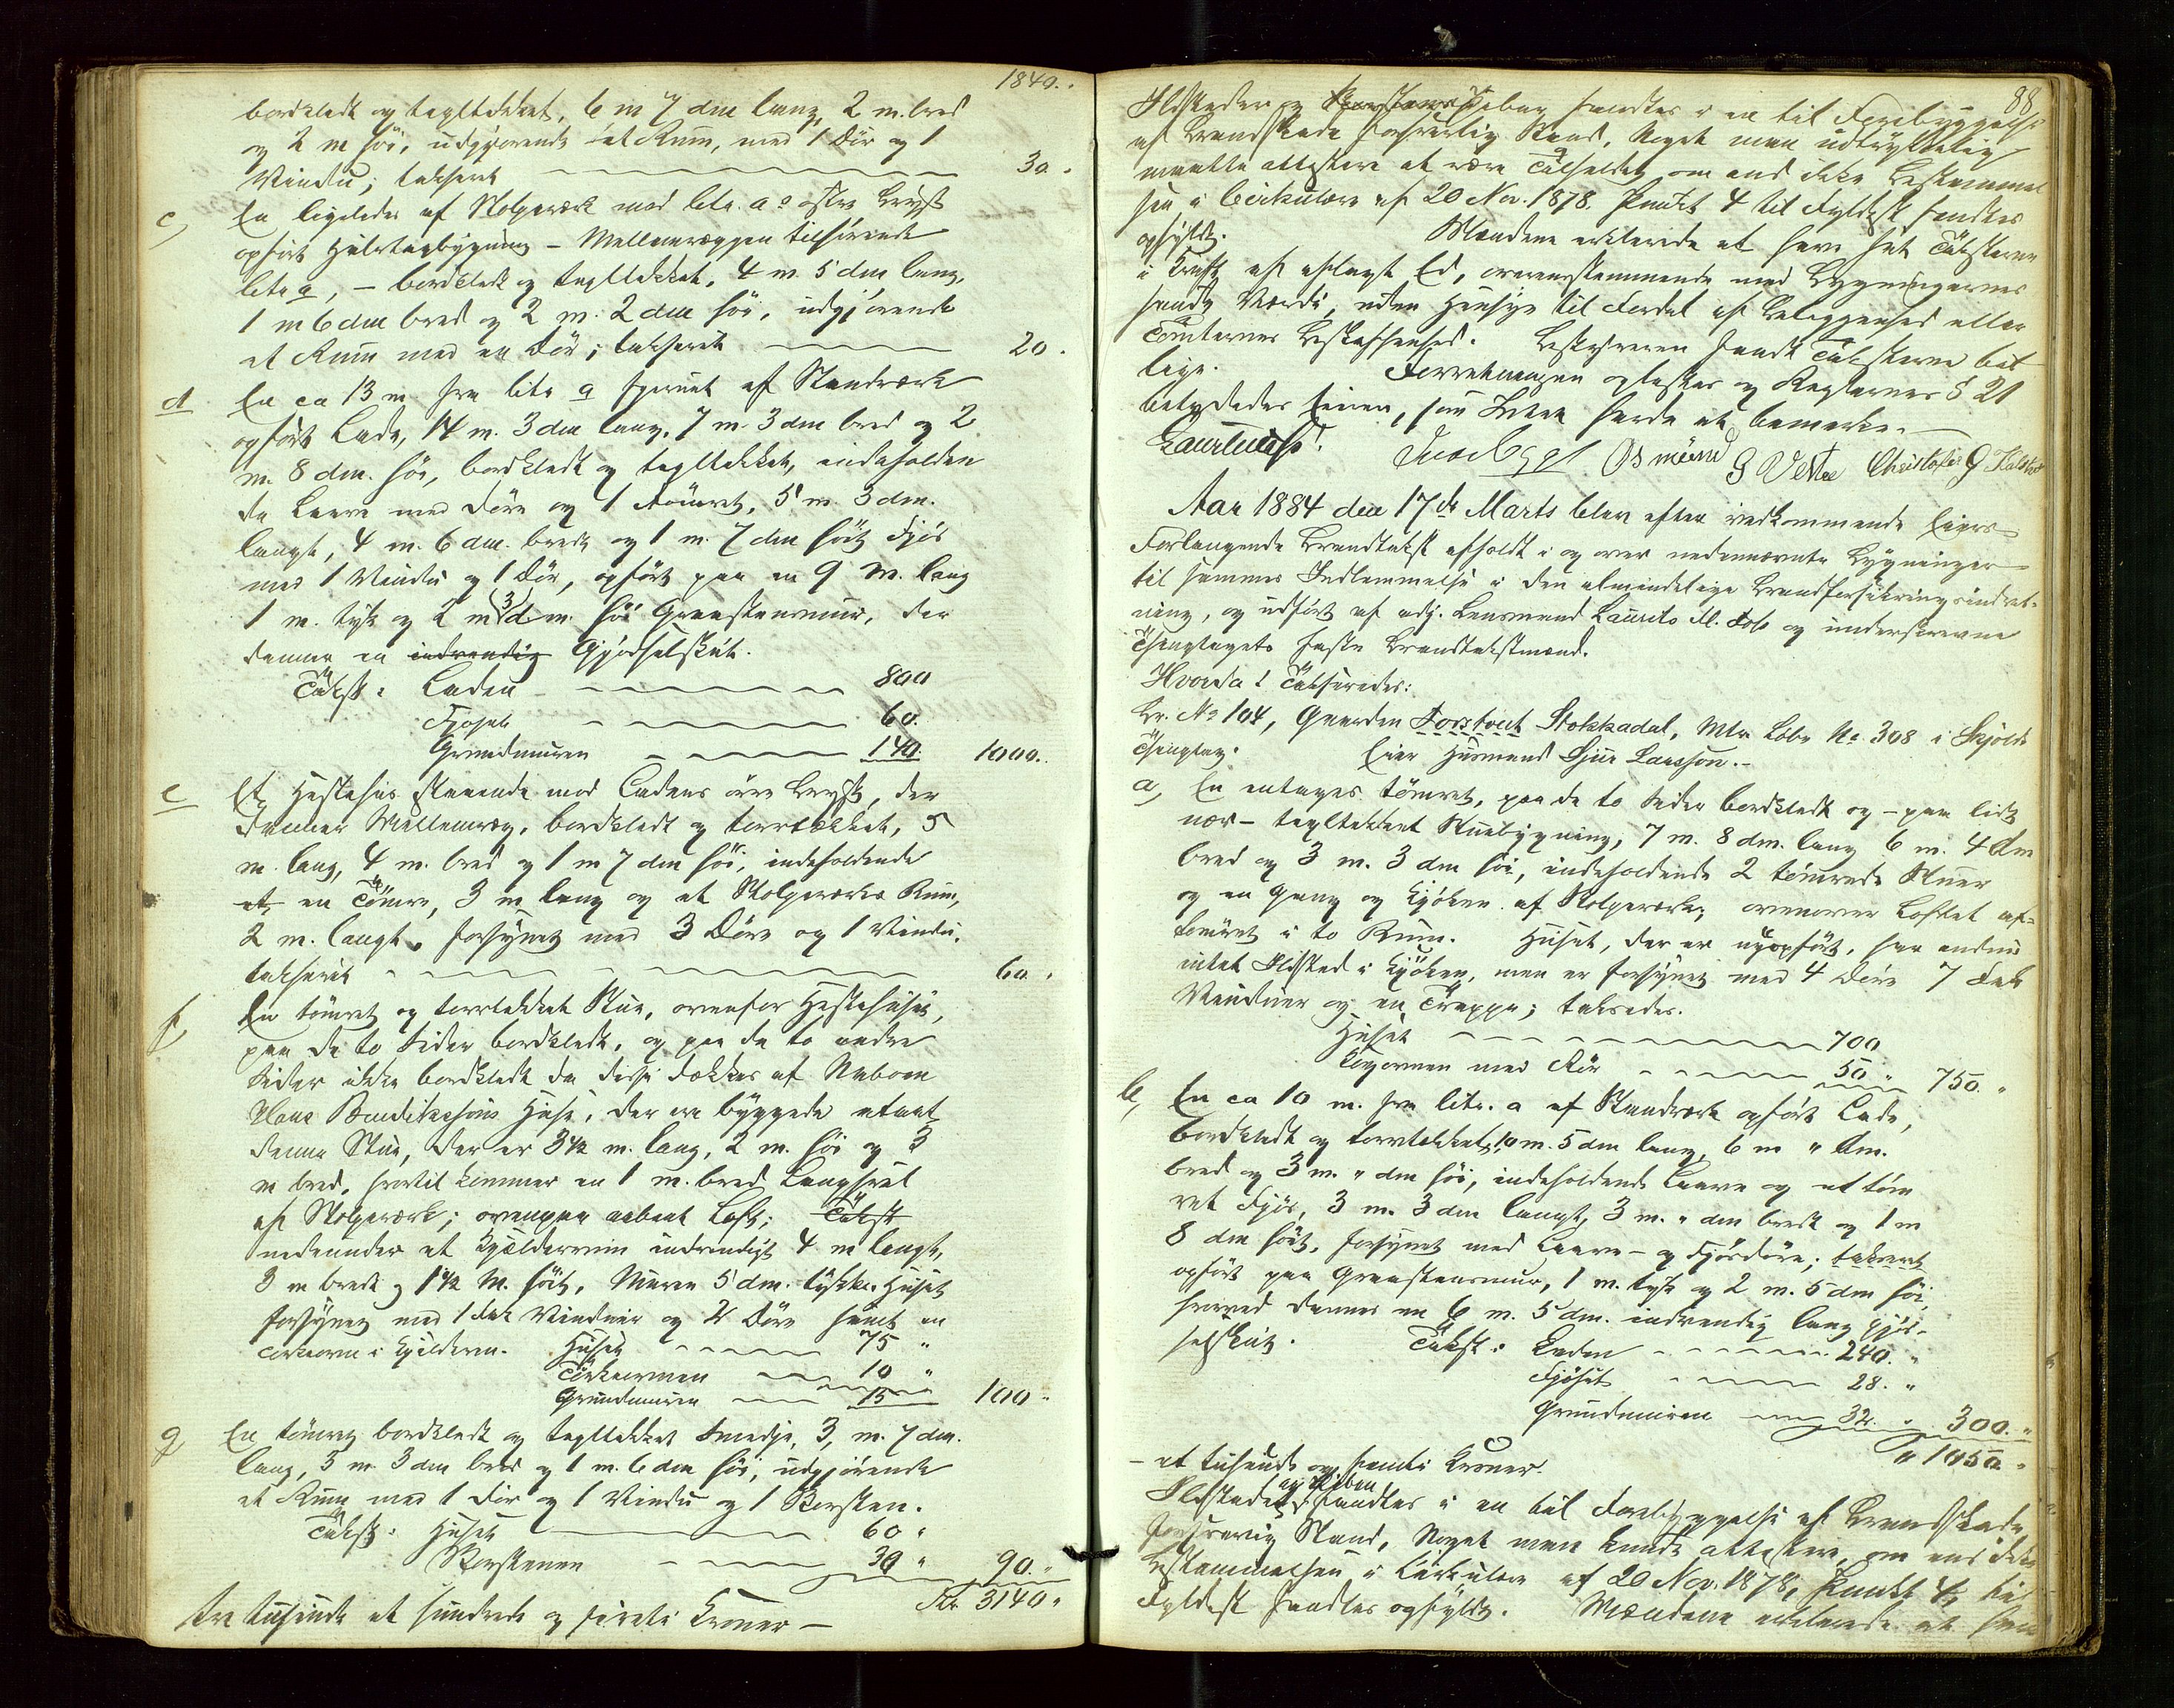 1840..
bordklædt og tegltækket, 6 m 7 dm lang, 2 m. bred
og 2 m høi, udgjørende et Rum, med 1 Dør og 1
Vindu; takseret 30.
c, En ligeledes af Stolpeværk mod litr. a's østre Gavl
opført Halvtagbygning – Mellemvæggen tilhørende
litr a, – bordklædt og tegltækket, 4 m. 5 dm lang,
1 m 6 dm bred og 2 m. 2 dm høi, udgjørende
et Rum med en Dør; takseret 20.
d En ca 13 m fra litr a fjernet af Standværk
opført Lade, 14 m. 3 dm lang, 7 m. 3 dm bred og 2
m. 8 dm. høi, bordklædt og tegltækket, indeholden
de Laave med Døre og 1 tømret, 5 m 3 dm.
langt, 4 m. 6 dm. bredt og 1 m. 7 dm høit Fjøs
med 1 Vindu og 1 Dør, opført paa en 9 m. lang
1 m. tyk og 2 m 3 dm. høi Graastensmur, der
danner en indvendig Gjødselskut.
Takst: Laden 800
Fjøset 60.
Grundmuren 140. 1000..
e Et Hestehus staaende mod Ladens øvre Gavl, der
danner Mellemvæg, bordklædt og torvtækket, 5
m. lang, 4 m. bred og 1 m 7 dm høi, indeholdende
et en Tømre, 3 m lang og et Stolpeværks Rum,
2 m. langt, forsynet med 3 Døre og 1 Vindu,
takseret 60.
f, En tømret og torvtækket Stue, ovenfor Hestehuset,
paa de to Sider bordklædt, og paa de to andre
Sider ikke bordklædt da disse dækkes af Naboen
Hans Bendiktsens Huse, der er byggede utæt
denne Stue, der er 3 1/2 m. lang, 2 m. høi og 3
m bred, hvortil kommer en 1 m. bred Langsval
af Stolpeværk; ovenpaa aabent Loft; Takst
nedenunder et Kjælderrum indvendigt 4 m langt,
3 m bredt og 1 1/2 M. høit, Muren 5 dm. tykk. Huset
forsynet med 1 Fak Vinduer og 2 Døre samt en
i Kjælderen. Huset 75 "
10 "
Grundmuren 15 100 "
g En tømret bordklædt og tegltækket Smedje, 3, m. 7 dm.
lang, 3 m 3 dm bred og 1 m. 6 dm høi, udgjørende
et Rum med 1 Dør og 1 Vindu og 1 Skorsten.
Takst: Huset 60 "
Skorstenen 30 " 90. "
Kr 3140 "
tre tusinde et hundrede og førreti Kroner –
88
Ildsteder og Skorstens Piber fandtes i en til Forebyggelse
af Brandskade forsvarlig Stand, Noget man udtrykkelig
maatte attestere at være Tilfældet, om end ikke Bestemmel
sen i Cirkulære af 20 Nov. 1878. Punkt 4 til Fyldest fandtes
opfyldt. Mændene erklærede at have sat Taksterne
i Kraft af aflagt Ed, overensstemmende med Bygningernes
sande Værdi, uden Hensyn til Fordel af Beliggenhed eller
Tomternes Beskaffenhed. Bestyreren fandt Taksterne bil
lige. Forretningen oplæstes og Reglernes § 21
betydedes Eieren, som Intet havde at bemærke. –
Osmund G Vestre Christofer G
Aar 1884 den 17de Marts blev efter vedkommende Eiers
Forlangende Brandtakst afholdt i og over nedennævnte Bygninger
til sammes Indlemmelse i den almindelige Brandforsikringsindret-
ning, og udført af adj. Lensmand Laurits M. Fos og underskrevne
Thinglagets faste Brandtakstmænd.
Hvorda! Takseredes:
Br. No 104, Gaarden Forstveit Stokkadal, Mtr. Løbe No. 308 i Skjolds
Thinglag. Eier Husmand Sjur Larsson. –
a, En entages tømret, paa de to Sider bordklædt og – paa lidt
nær – tegltækket Stuebygning, 7 m. 8 dm. lang 6 m. 4 dm
bred og 3 m. 3 dm høi, indeholdende 2 tømrede Stuer
og en Gang og Kjøken af Stolpeværk, ovenover Loftet af-
tømret i to Rum. Huset, der er nyopført, har endnu
intet Ildsted i Kjøken, men er forsynet med 4 Døre 7 Fak
Vinduer og en Trappe; taksedes.
Huset 700
Kogeovnen med Rør 50 " 750. "
b, En ca 10 m. fra litr. a af Standværk opført Lade,
bordklædt og torvtækket, 10 m. 5 dm lang, 6 m " dm.
bred og 3 m. " dm høi, indeholdende Laave og et tøm
ret Fjøs, 3 m. 3 dm langt, 3 m. " dm bredt og 1 m
8 dm høit, forsynet med Laave- og Fjøsdøre; takseret
opført paa Graastensmur, 1 m. tyk og 2 m. 5 dm høi,
hvorved dannes en 6 m. 5 dm. indvendig lang Gjød-
selskut. Takst: Laden 240. "
Fjøset 28. "
Grundmuren 32. " 300. "
" 1050 "
– et tusinde og femti Kroner.
Ildstedet og Piben fandtes i en til Forebyggelse af Brandskade
forsvarlig Stand, Noget man kunde attestere, om end ikke
Bestemmelsen i Cirkulære af 20 Nov. 1878, Punkt 4, til
Fyldest fandtes opfyldt. Mændene erklærede at have